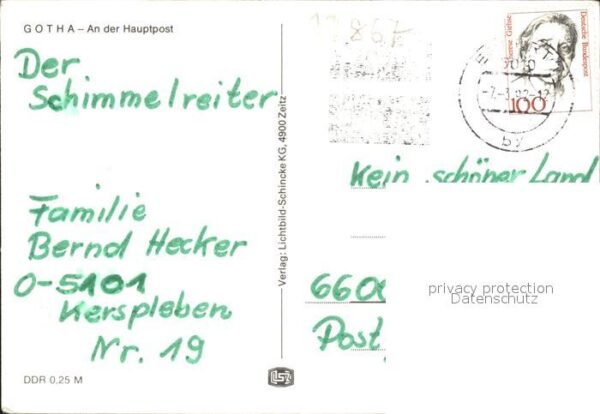 GOTHA – An der Hauptpost
Der
Schimmelreiter
Familie
Bernd Hecker
O-5101
Kerspleben
Nr. 19
DDR 0,25 M
Verlag: Lichtbild-Schincke KG, 4900 Zeitz
11867
Deutsche Bundespost
100
Kein schöner Land
660
Post
privacy protection
Datenschutz